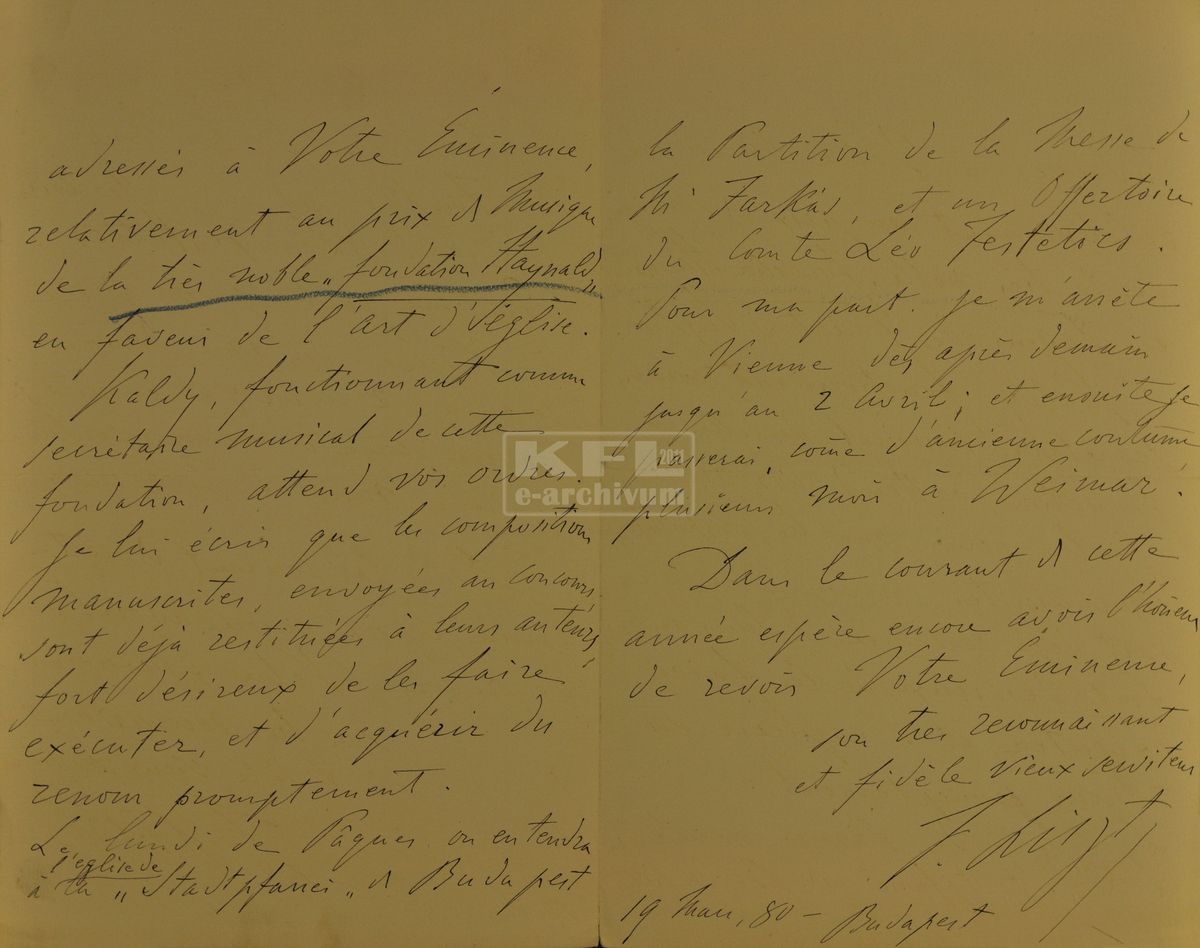 adressés à Votre Éminence,
relativement au prix de Musique
de la très noble „fondation Haynald"
en faveur de l'art d'église.
Kaldy, fonctionnant comme
secrétaire musical de cette
fondation, attend vos ordres.
Je lui écris que les compositions
manuscrites, envoyées au concours
sont déjà restituées à leurs auteurs,
fort désireux de les faire
exécuter, et d'acquérir du
renom promptement.
Le lundi de Pâques on entendra
l'église de
à la „Stadtpfarrei„ de Budapest
la Partition de la Messe de
Mr Farkas, et un Offertoire
du Comte Léo Festetics.
Pour ma part je m'arrête
à Vienne dès après demain
jusqu'au 2 Avril; et ensuite je
passerai, come d'ancienne coutume,
plusieurs mois à Weimar.
Dans le courant de cette
année espère encore avoir l'honeur
de revoir Votre Éminence,
son très reconnaissant
et fidèle vieux serviteur
F. Liszt
19 Mars, 80 – Budapest
KFL 2011
e-archivum